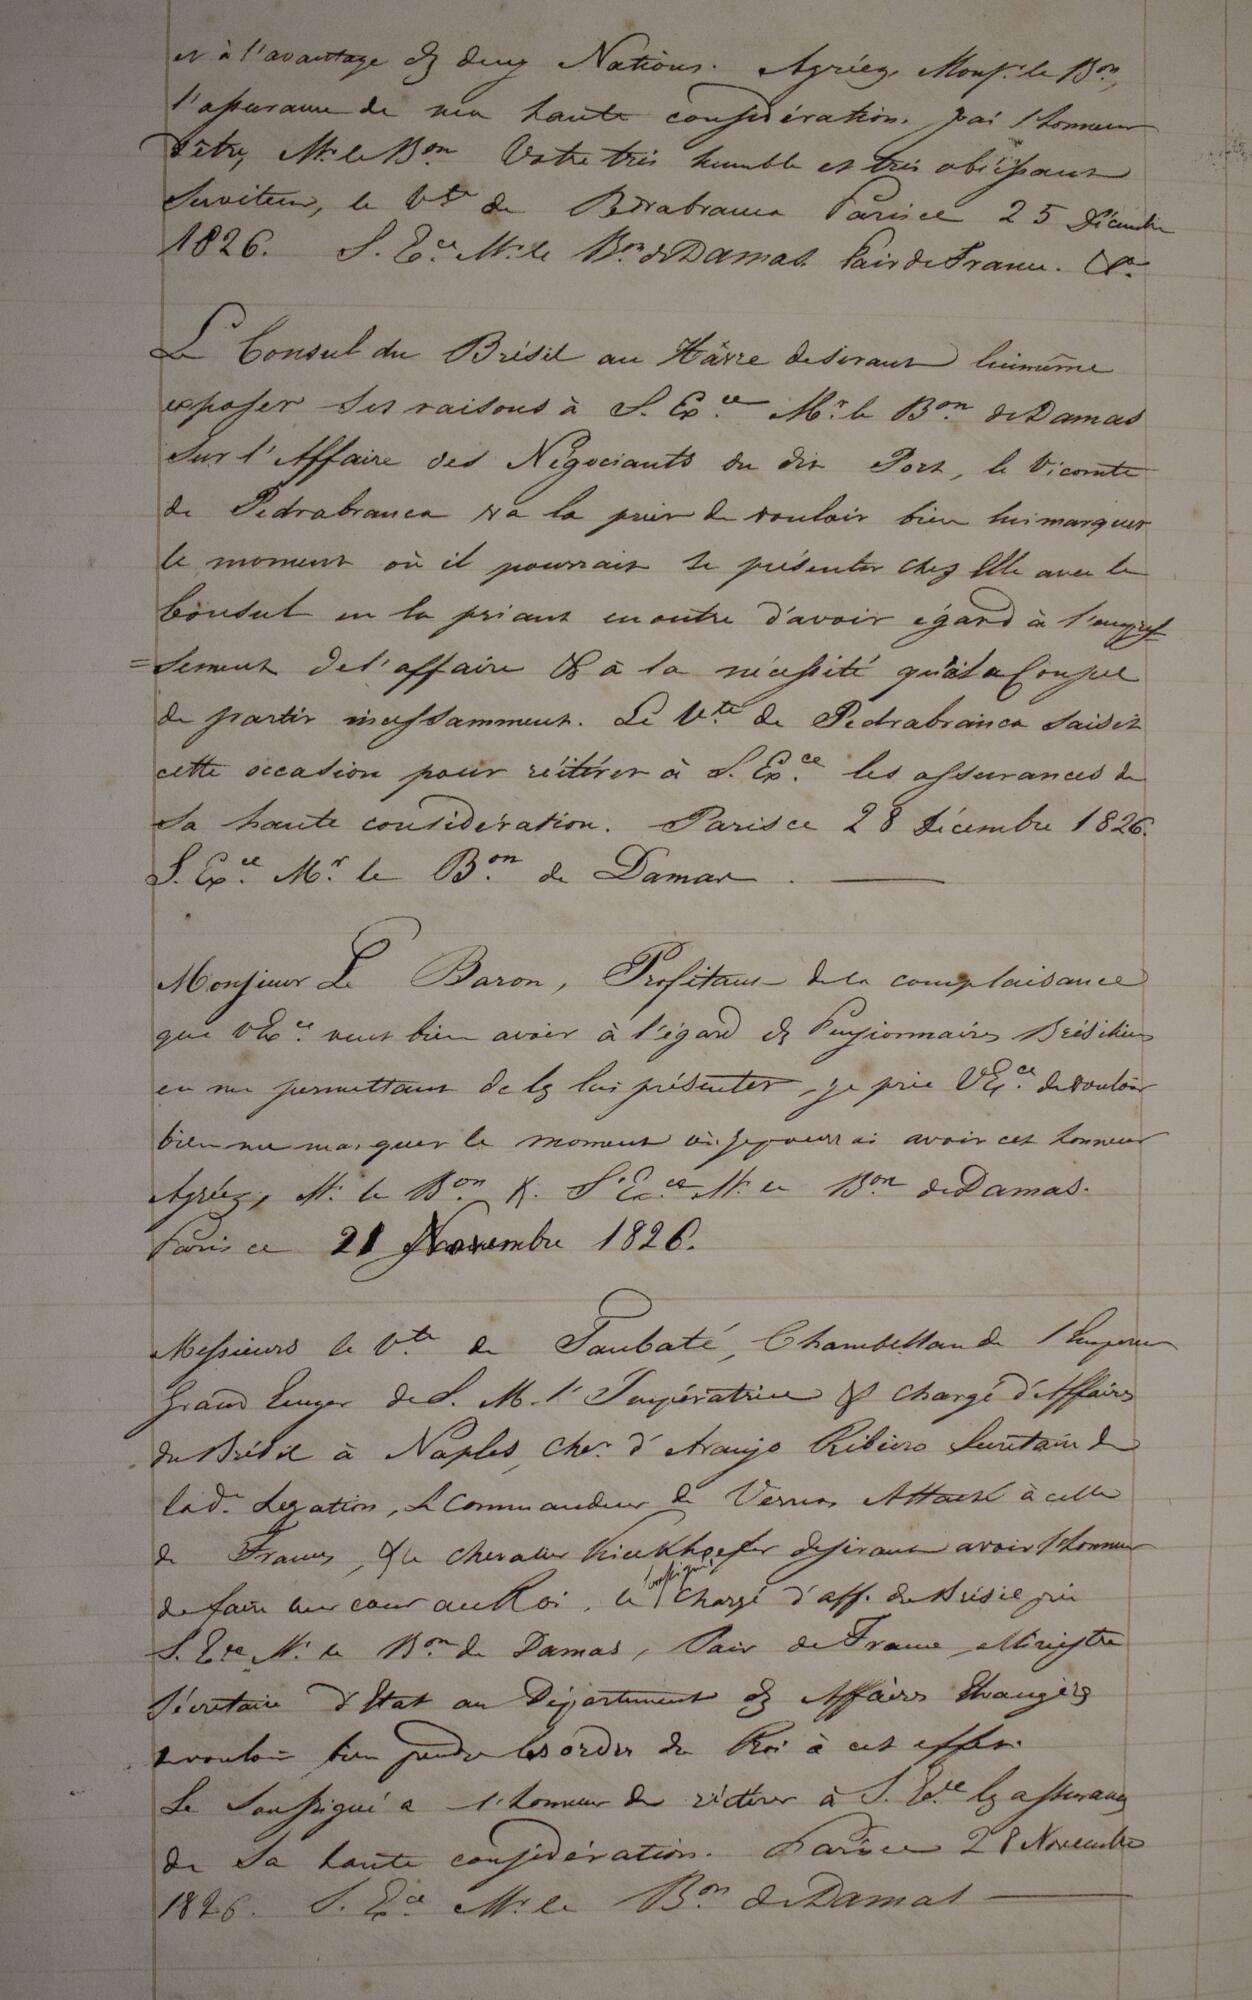 et à l'avantage des deux Nations. Agréez, Monsr. le Bon,
l'assurance de ma haute considération. J'ai l'honneur
d'être, Mr. le Bon. Votre très humble et très obéissant
Serviteur, le Vte de Pedrabranca Paris ce 25 Décembre
1826. S. Ece. Mr. le Bon. de Damas Pair de France. &a.
Le Consul du Brésil au Hâvre desirant luimême
exposer ses raisons à S. Exce. Mr. le Bon. de Damas
sur l'Affaire des Négociants du dit Port, le Vicomte
de Pedrabranca va la prier de vouloir bien lui marquer
le moment où il pourrait se présenter chez Elle avec le
Consul en la priant en outre d'avoir égard à l'empres
= sement de l'affaire & à la nécessité qu'a le Consul
de partir incessamment. Le Vte. de Pedrabranca saisit
cette occasion pour réitérer à S. Exce. les assurances de
sa haute considération. Paris ce 28 Décembre 1826.
S. Exce. Mr. le Bon. de Damas. —
Monsieur Le Baron, Profitant de la complaisance
que V Exce. veut bien avoir à l'égard des Pensionnaires Brésiliens
en me permettant de les lui présenter, je prie V Exce. de vouloir
bien me marquer le moment où je pourrai avoir cet honneur
Agréez, Mr. le Bon. &. S. Exce. Mr. le Bon de Damas.
Paris ce 21 Novembre 1826.
Messieurs le Vte de Taubaté, Chambellan de l'Empereur
Grand Ecuyer de S. M. l'Impératrice & chargé d'Affaires
du Brésil à Naples, Cher. d'Araujo Ribeiro Secrétaire de
lad. Légation, Le Commandeur de Verna Attaché à celle
de France, & le chevalier Kieckhoefer desirant avoir l'honneur
de faire leur cour au Roi, le soussigné chargé d'aff. du Brésil prie
S. Ece Mr. le Bon de Damas, Pair de France, Ministre
Sécretaire d'Etat au Département des Affaires Etrangères
de vouloir bien prendre les ordres du Roi à cet effet.
Le Soussigné a l'honneur de réitérer à S. Ece. les assurances
de sa haute considération. Paris ce 28 Novembre
1826. S. Ece Mr. le Bon de Damas —